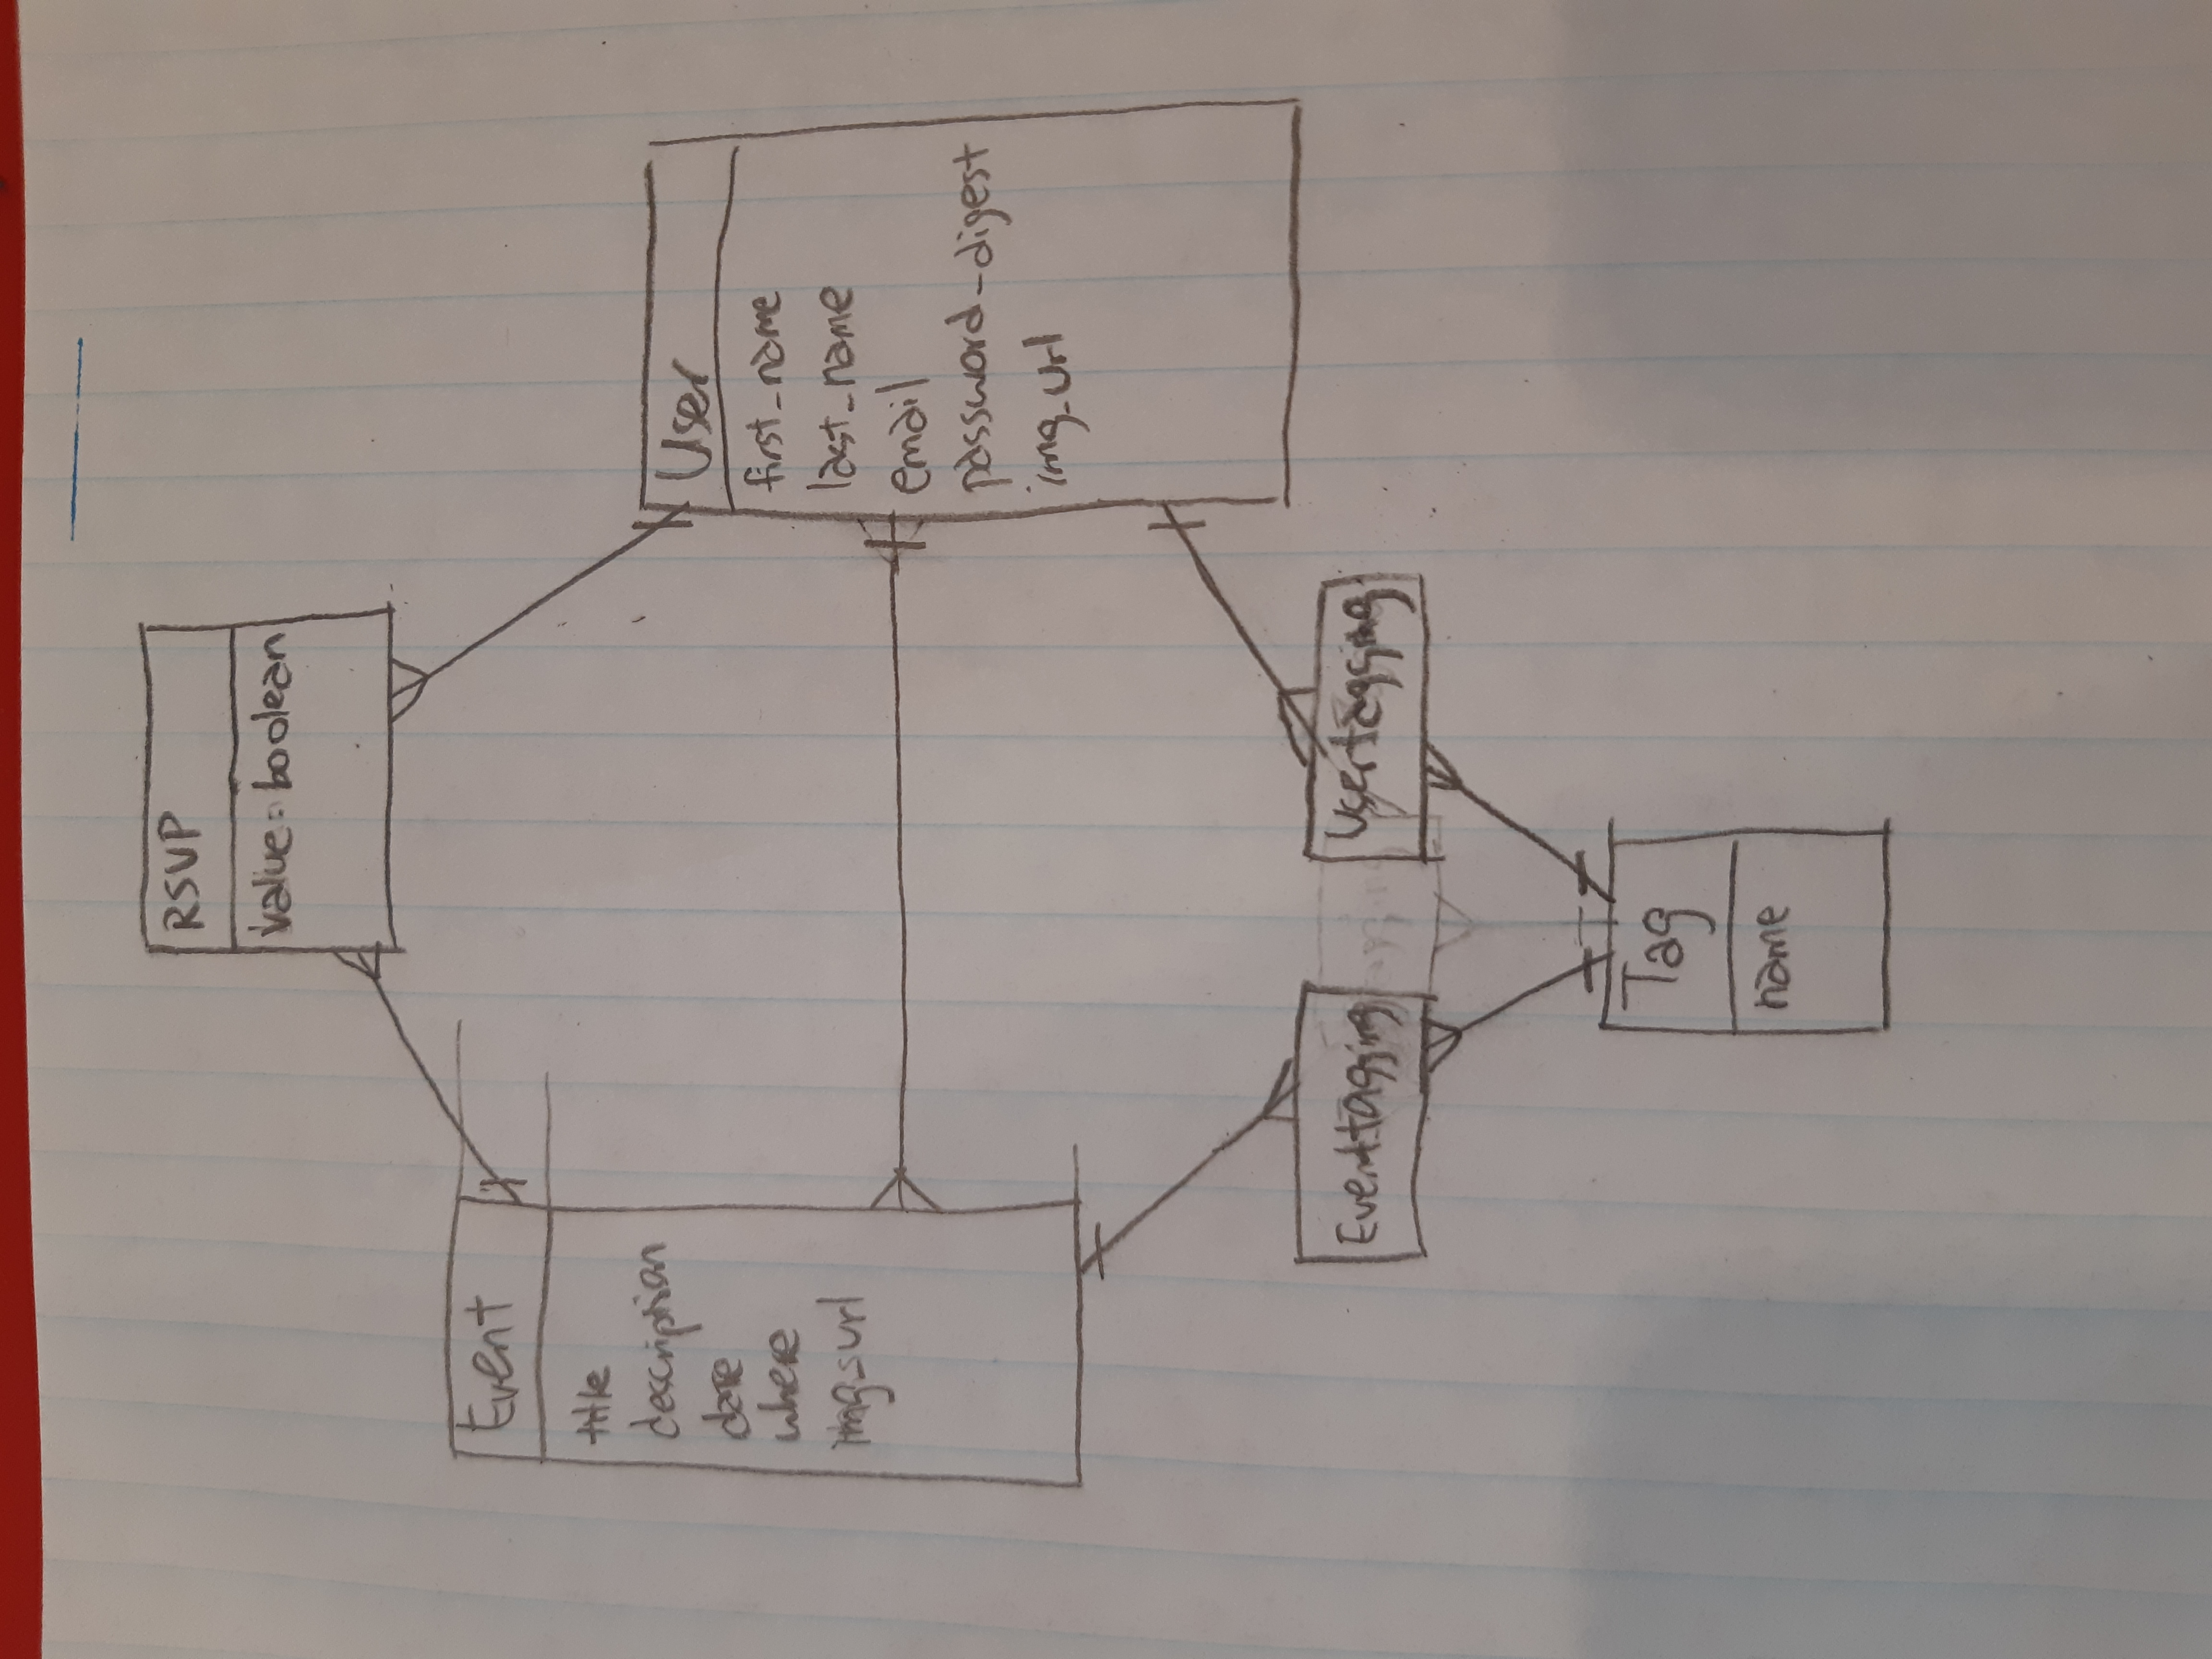 RSVP
value: boolean
Event
title
description
date
where
img_url
User
first_name
last_name
email
password_digest
img_url
Eventtagging
Usertagging
Tag
name